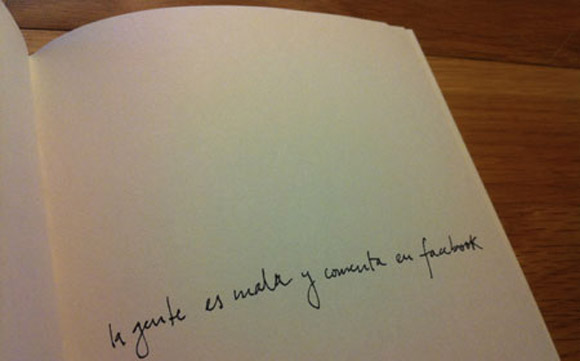 la gente es mala y comenta en facebook